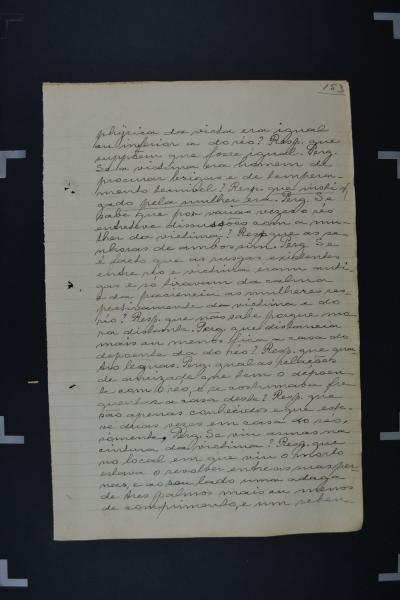 153
physica da victa era igual
ou inferior a do réo? Resp. que
suppõem que fosse igual. Perg.
Se a victima era homem de
procurar brigas e de tempera-
mento temivel? Resp. que insti-
gado pela mulher era. Perg. Se
sabe que por varias vezes o réo
entreteve discussões com a mu-
lher da victima? Resp. que as se-
nhoras de ambos sim. Perg. Se
é facto que as rusgas existentes
entre réo e victima eram anti-
gas e só tiravam da calma
e da paciencia as mulheres res-
pectivamente da victima e do
réo? Resp. que não sabe porque mo-
ra distante. Perg. que distancia
mais ou menos fica a casa do
depoente da do réo? Resp. que qua-
tro leguas. Perg. qual as relações
de amizade que tem o depoen-
te com o réo, e se costumava fre-
quentar a casa deste? Resp. que
são apenas conhecidos e que este-
ve duas vezes em casa do réo,
somente. Perg. Se viu armas na
cintura da victima? Resp. que
no local em que viu o morto
estava o revolver entre as suas per-
nas, e ao seu lado uma adaga
de tres palmos mais ou menos
de comprimento, e um reben-